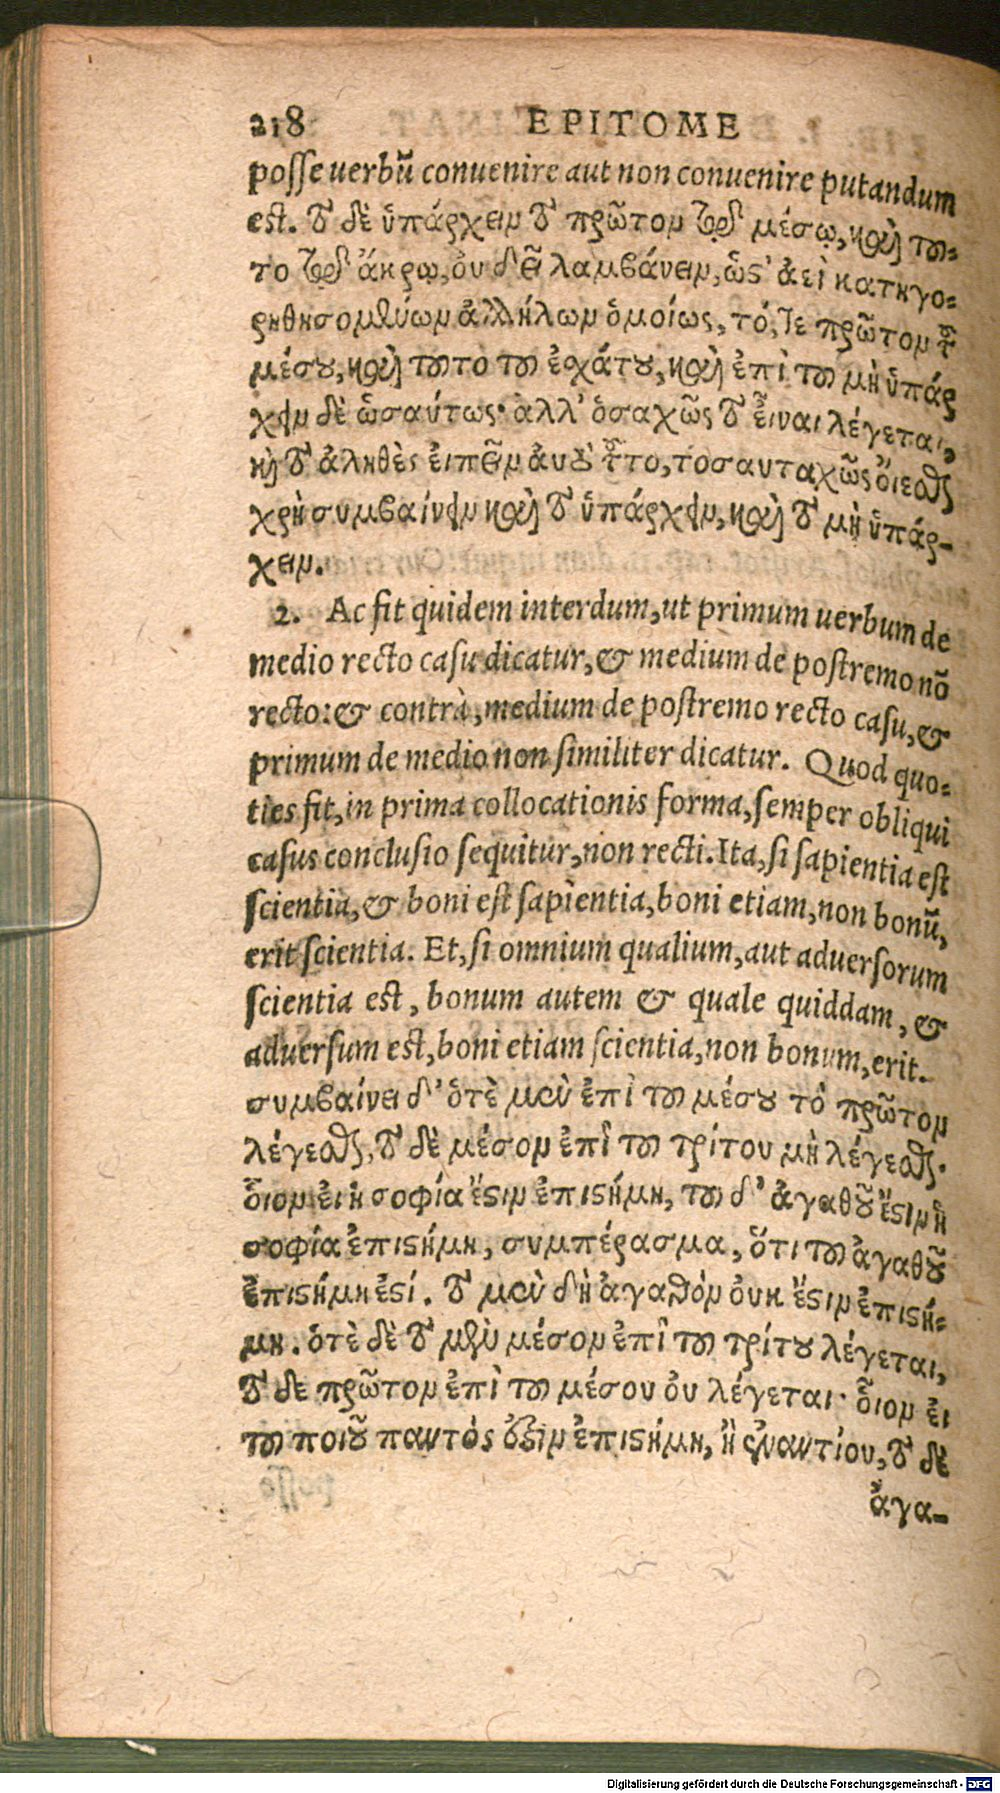 218 EPITOME
posse uerbũ conuenire aut non conuenire putandum
est. τὸ δὲ ὑπάρχειν τὸ πρῶτον τῷ μέσῳ, καὶ τοῦ-
το τῷ ἄκρῳ, οὐ δεῖ λαμβάνειν, ὡς ἀεὶ κατηγο-
ρηθησομένων ἀλλήλων ὁμοίως, τό, τε πρῶτον τοῦ
μέσου, καὶ τοῦτο τοῦ ἐσχάτου, καὶ ἐπὶ τοῦ μὴ ὑπάρ
χειν δὲ ὡσαύτως· ἀλλ' ὁσαχῶς τὸ εἶναι λέγεται,
καὶ τὸ ἀληθὲς εἰπεῖν αὐτὸ τοῦτο, τοσαυταχῶς οἴεσθαι
χρὴ συμβαίνειν καὶ τὸ ὑπάρχειν, καὶ τὸ μὴ ὑπάρ-
χειν.
2. Ac fit quidem interdum, ut primum uerbum de
medio recto casu dicatur, & medium de postremo nõ
recto: & contrà, medium de postremo recto casu, &
primum de medio non similiter dicatur. Quod quo-
ties fit, in prima collocationis forma, semper obliqui
casus conclusio sequitur, non recti. Ita, si sapientia est
scientia, & boni est sapientia, boni etiam, non bonũ,
erit scientia. Et, si omnium qualium, aut aduersorum
scientia est, bonum autem & quale quiddam, &
aduersum est, boni etiam scientia, non bonum, erit.
συμβαίνει δ' ὁτὲ μὲν ἐπὶ τοῦ μέσου τὸ πρῶτον
λέγεσθαι, τὸ δὲ μέσον ἐπὶ τοῦ τρίτου μὴ λέγεσθαι·
οἷον εἰ ἡ σοφία ἔστιν ἐπιστήμη, τοῦ δ' ἀγαθοῦ ἔστιν ἡ
σοφία ἐπιστήμη, συμπέρασμα, ὅτι τοῦ ἀγαθοῦ
ἐπιστήμη ἐστί. τὸ μὲν δὴ ἀγαθὸν οὐκ ἔστιν ἐπιστή-
μη. ὁτὲ δὲ τὸ μὲν μέσον ἐπὶ τοῦ τρίτου λέγεται,
τὸ δε πρῶτον ἐπὶ τοῦ μέσου οὐ λέγεται· οἷον εἰ
τοῦ ποιοῦ παντός ἐστιν ἐπιστήμη, ἢ ἐναντίου, τὸ δὲ
ἀγα-
Digitalisierung gefördert durch die Deutsche Forschungsgemeinschaft - DFG